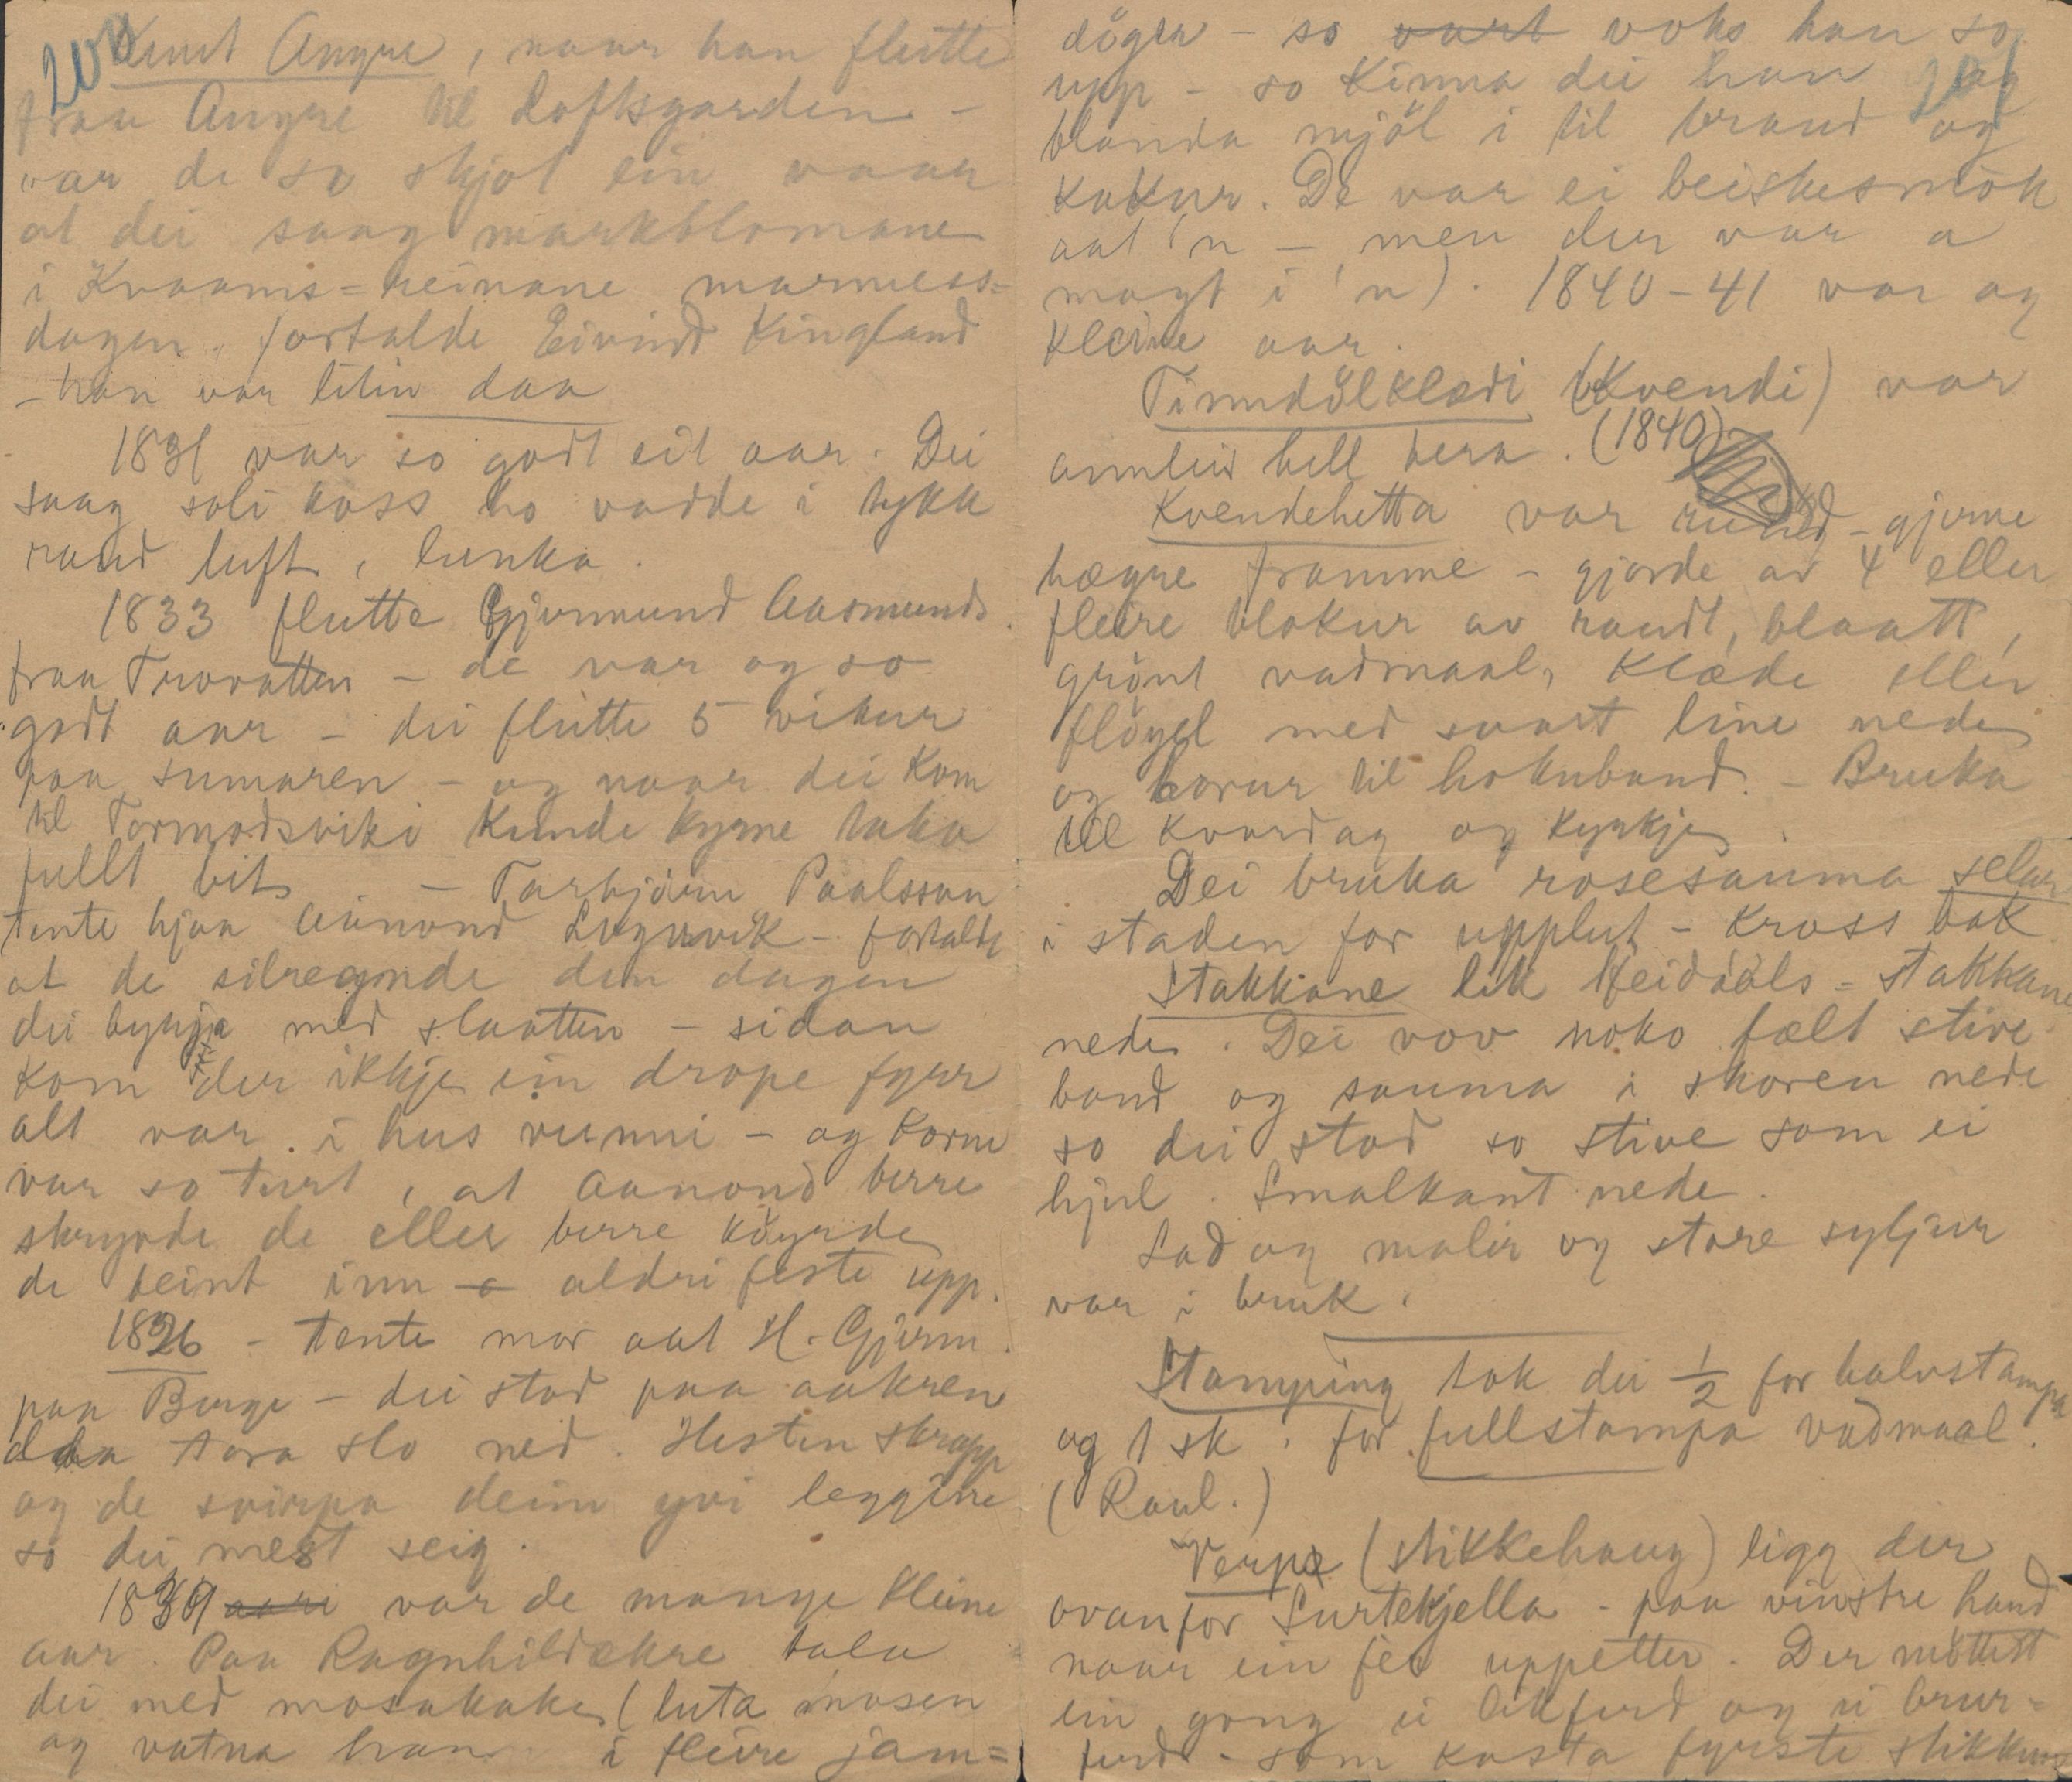 200
Knut Angre, naar han flutte
fraa Angre til Loftsgarden -
var de so skjot ein vaar
at dei saag markblomane
i Kraams=reinane marmess=
dagen, fortalde Eivind Kingland
- han var litin daa
1831 var so godt eit aar. Dei
saag soli koss ho vadde i tykk
raud luft, lunka.
1833 flutte Gjermund Aasmunds.
fraa Trovatten - de var og so
godt aar - dei flutte 5 vikur
paa sumaren - og naar dei kom
til Tormodsviki kunde kyrne taka
fullt bit - Tarbjørn Paalsson
tente hjaa Aanond Lognvik - fortalde
at de silregnde den dagen
dei bynja med slaatten - sidan
kom der ikkje ein drope fyrr
alt var i hus vunni - og korne
var so turt, at Aanond berre
skrypde de eller berre køyrde
de beint inn - aldri feste upp.
1826 - tente mor aat H. Gjerm.
paa Berge - dei stod paa aakren
daa tora slo ned. Hesten skrapp
og de svirpa deim yvi leggine
so dei mest seig.
1839 var de mange kleine
aar. Paa Ragnhildækre tala
dei med mosakake (luta mosen
og vatna han i fleire jam=
201
døger - so vart voks han so
upp - so kinna dei han og
blanda mjøl i til braud og
kakur. De var ei beiskesmok
aat 'n - men der var a
magt i 'n). 1840-41 var og
kleine aar.
Tinndølklædi (Kvendi) var
annleis hell hera. (1840)
Kvendehetta var rund - gjerne
hægre framme - gjorde av 4 eller
fleire blokur av raudt, blaatt,
grønt vadmaal, klæde eller
fløyel med svart line nede
og borur til hokuband. - Bruka
til kvardag og kyrkje.
Dei bruka rosesauma selar
i staden for upplut - kross bak
Stakkane lik Heidøls=stakkane
nede. Dei vov noko fælt stive
band og sauma i skoren nede
so dei stod so stive som ei
hjul. Smalkant nede.
Lad og malir og store syljur
var i bruk.
Stamping tok dei 1/2 for halvstampa
og 1 sk. for fullstampa vadmaal.
(Raul.)
Verpe (stikkehaug) ligg der
ovanfor Surtekjella - paa vinstre hand
naar ein fer uppetter. Der møttest
ein gong ei likferd og ei brur=
ferd - som kasta fyrste stikkun